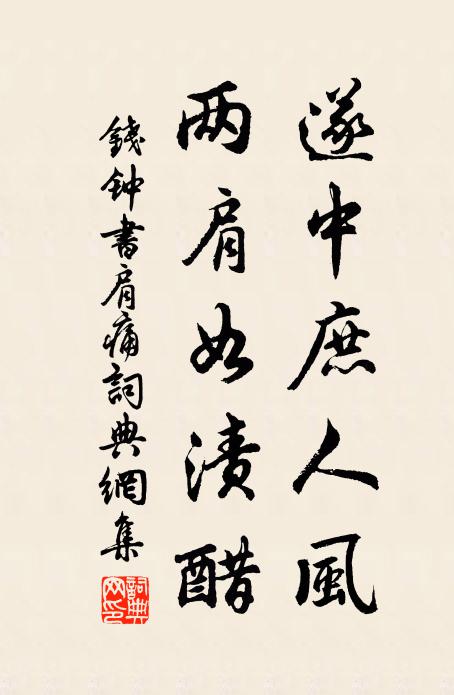 遂中庶人風
两肩如漬醋
錢钟書肩痛詞典網集
詞典网印